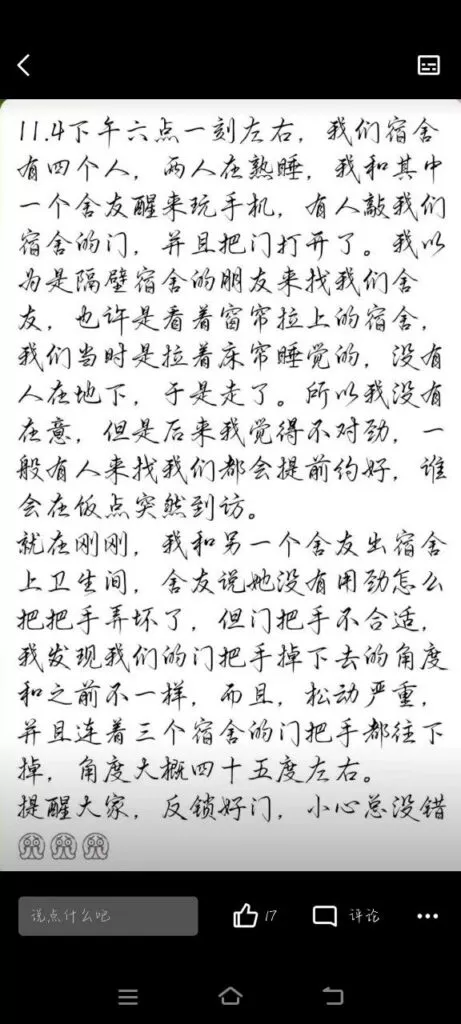 11.4下午六点一刻左右，我们宿舍
有四个人，两人在熟睡，我和其中
一个舍友醒来玩手机，有人敲我们
宿舍的门，并且把门打开了。我以
为是隔壁宿舍的朋友来找我们舍
友，也许是看着窗帘拉上的宿舍，
我们当时是拉着床帘睡觉的，没有
人在地下，于是走了。所以我没有
在意，但是后来我觉得不对劲，一
般有人来找我们都会提前约好，谁
会在饭点突然到访。
就在刚刚，我和另一个舍友出宿舍
上卫生间，舍友说她没有用劲怎么
把把手弄坏了，但门把手不合适，
我发现我们的门把手掉下去的角度
和之前不一样，而且，松动严重，
并且连着三个宿舍的门把手都往下
掉，角度大概四十五度左右。
提醒大家，反锁好门，小心总没错
说点什么吧 17 评论